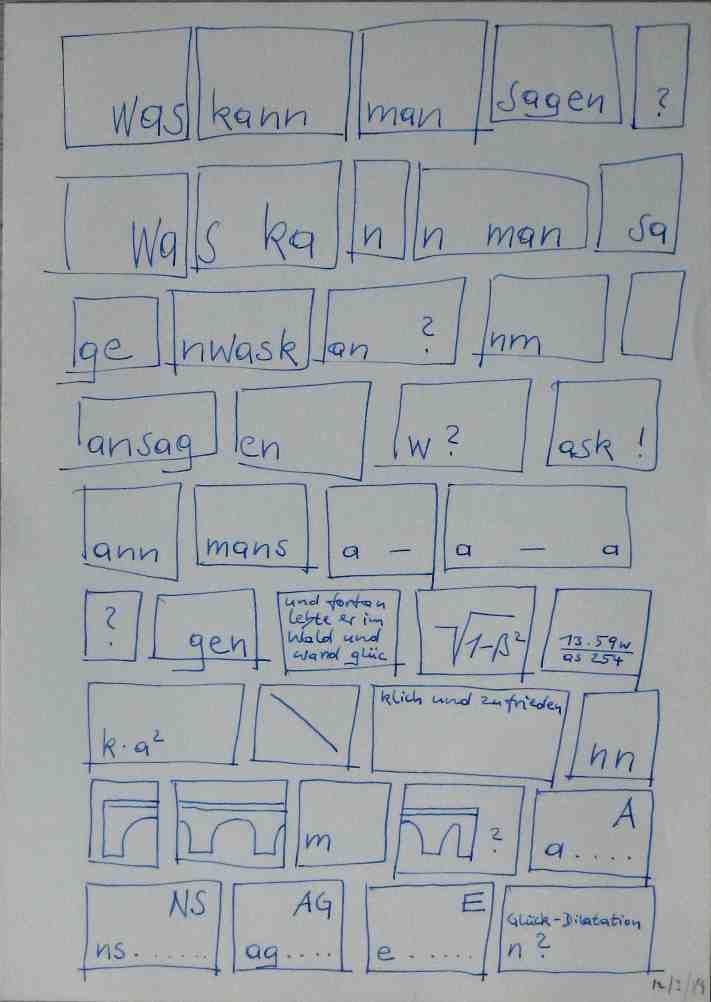 was kann man sagen ?
wa s ka n n man sa
ge nwask an ? nm
ansag en w ? ask !
ann mans a – a – a
? gen und fortan lebte er im Wald und ward glüc √1-β² 13.59w/as 254
k·a² \ klich und zufrieden nn
m ? A a....
NS ns....... AG ag.... E e...... Glück-Dilatation n ?